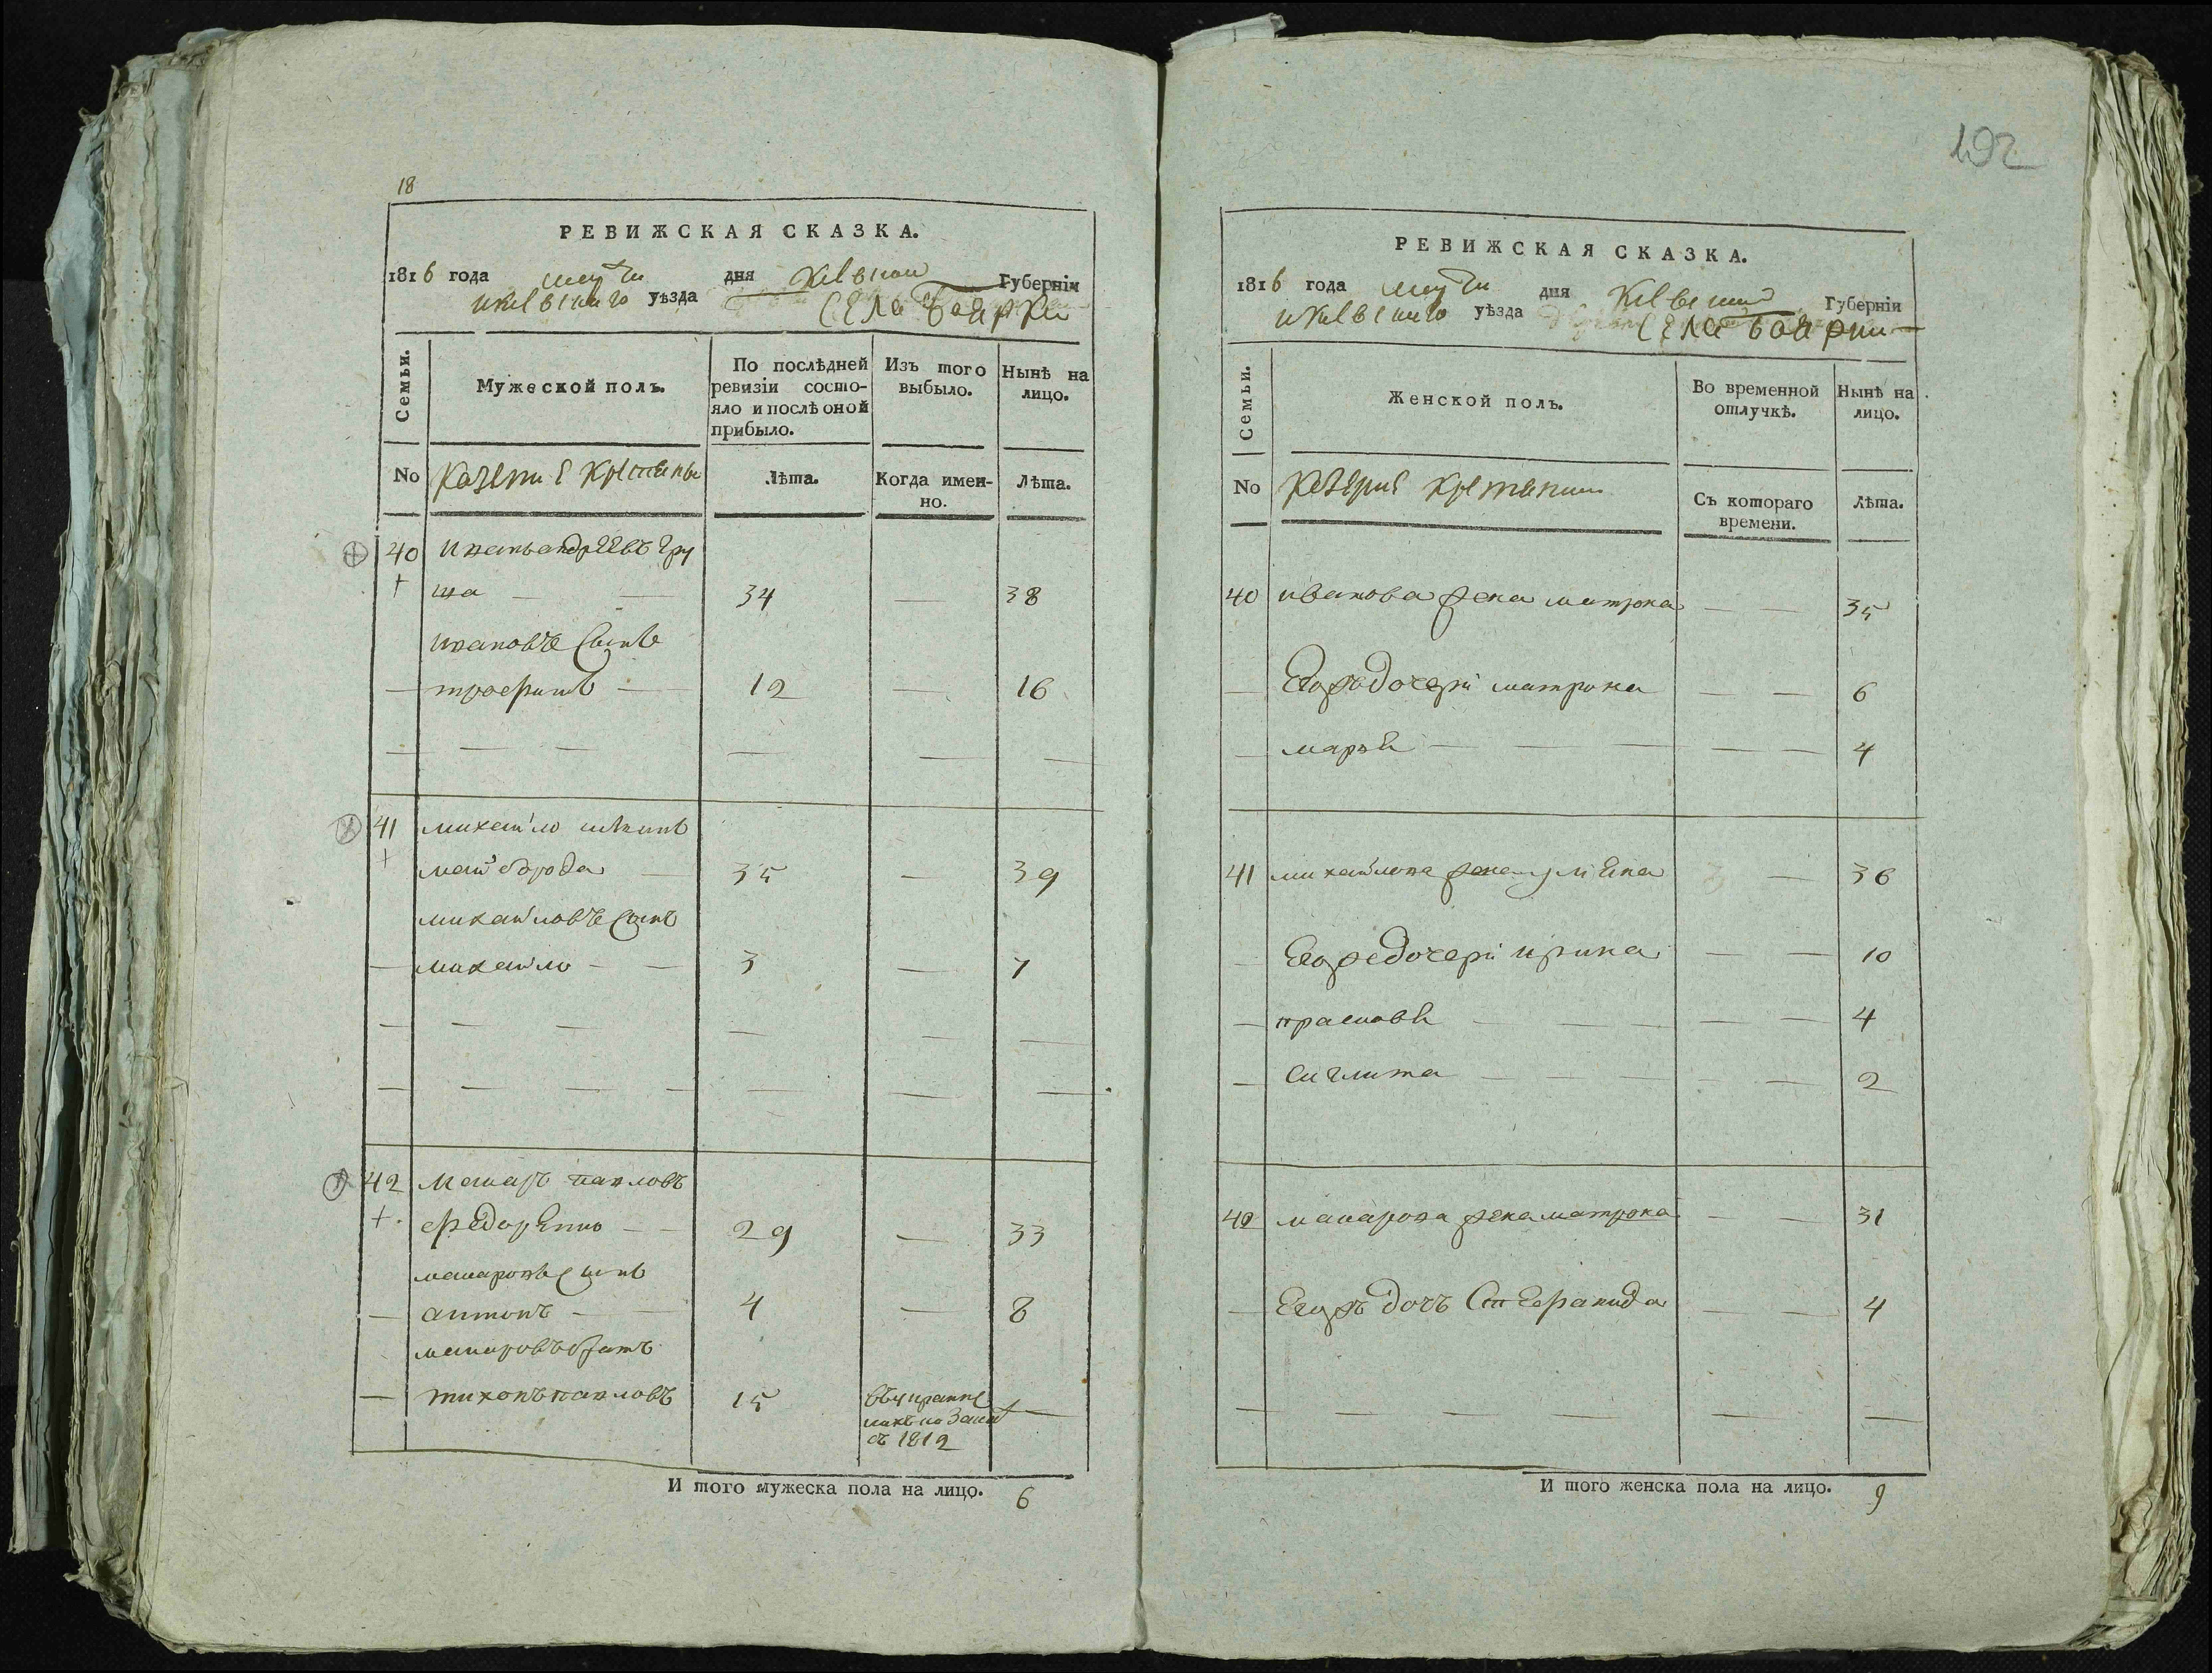 18
РЕВИЖСКАЯ СКАЗКА.
1816 года дня Киевской Губерніи
и Киевского уѣзда Села Боярки
Семьи.
Мужеской полъ.
По послѣдней ревизіи состо-
яло и послѣ оной прибыло.
Изъ того выбыло.
Нынѣ на лицо.
No Казенные Крестьяне Лѣта. Когда имен-
но. Лѣта.
40 Иванъ андрѣевъ Гру
ша — — 34 — 38
ивановъ Сынъ
— трофимъ — 12 — 16
— — — — — —
41 михайло
майборода — 35 — 39
михайловъ Сынъ
— михайло — — 3 — 7
— — — — — —
— — — — — — —
42 Макаръ павловъ
федоренко — — 29 — 33
макаровъ Сынъ
— антонъ — — 4 — 8
макаровъ братъ
— тихонъ павловъ 15 —
съ 1812
И того мужеска пола на лицо. 6
102
РЕВИЖСКАЯ СКАЗКА.
1816 года дня Киевской Губерніи
и Киевского уѣзда Села Боярки —
Семьи.
Женской полъ.
Во временной отлучкѣ.
Нынѣ на лицо.
No Казенные Крестьянки Съ котораго
времени. Лѣта.
40 иванова жена матрона — — 35
— Егожъ дочери матрона — — 6
— марья — — — — — 4
41 михайлова жена ульяна — 36
— Егоже дочери ирина — — 10
— прасковья — — — — — 4
— — — — — — 2
42 макарова жена матрона — — 31
— Егожъ дочь Стефанида — — 4
— — — — — — —
И того женска пола на лицо. 9